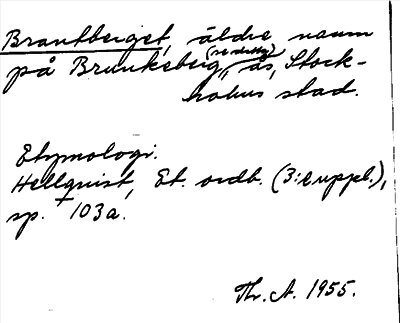 Brantberget, äldre namn
på Brunkeberg (se detta), ås, Stock-
holms stad.
Etymologi.
Hellquist, Et. ordb. (3:e uppl.),
sp. 103a.
Th. A. 1955.